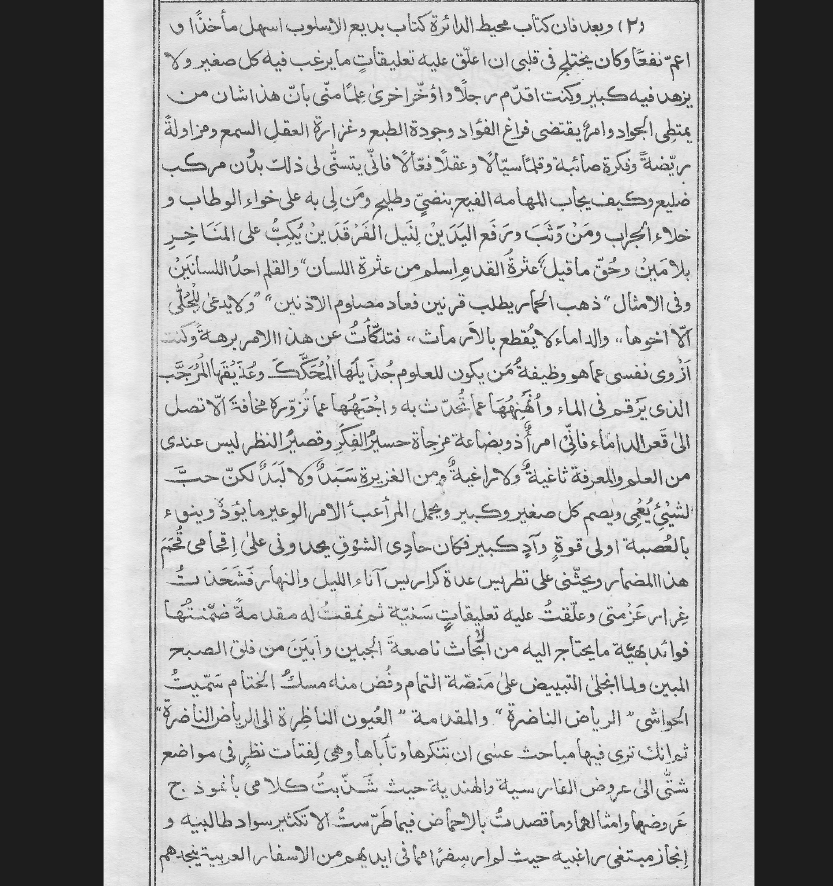 (٢) وبعد فان كتاب محيط الدائرة كتاب بديع الاسلوب اسهل مأخذًا و
اعمّ نفعًا وكان يختلج فى قلبى ان اعلّق عليه تعليقاتٍ ما يرغب فيه كل صغير ولا
يزهد فيه كبير وكنت اقدّم رجلًا واؤخّر اخرى علمًا منّى بأنّ هذا شان من
يمتطى الجواد وامرٌ يقتضى فراغ الفؤاد وجودة الطبع وغزارة العقل السمع ومزاولةً
ريّضةً وفكرة صائبة وقلمًا سيّالًا وعقلًا فعّالًا فانّى يتسنّى لى ذلك بدُون مركب
ضليع وكيف يجاب المهامه الفيح بنضيٍّ وطليحٍ ومَن لى به على خواء الوطاب و
خلاء الجراب ومَنْ وَثَبَ ورَفَع اليَدَيْن لِنَيل الفَرْقَدَيْن يُكَبُّ على المنَاخِرِ
بلا مَيْنٍ وحُقّ ما قيل "عثرةُ القدم اسلم من عثرة اللسان" والقلم احدُ اللسانَيْن
وفى الامثال "ذهب الحمار يطلب قرنين فعاد مصلوم الاذنين" "ولا يدعى لِلْجُلّى
الّا اخوها" والداماء لا يُقطع بالارماث" فتلكّأتُ عن هذا الامر برهةً وكنت
ازْوى نفسى عما هو وظيفةُ مَن يكون للعلوم جُذَيلَها المُحَكَّكَ وعُذَيْقَها المُرَجَّبَ
الذى يَرقم فى الماء وأُنَهْنِهُهَا عما تُحدّث به واجْبَهُها عما تُزوّره مخافةَ الّا تصل
الى قعر الداماء فانّى امرأٌ ذو بضاعة مزجاة حسيرُ الفِكَرِ وقصيرُ النظر ليس عندى
من العلم والمعرفة ثاغيةٌ ولا راغيةٌ ومن الغزيرة سَبَدٌ ولا لَبَدٌ لكنّ حبَّ
الشئِ يُعْمِى ويصم كل صغير وكبير ويحمل المرأ عبأ الامر الوعير ما يؤدُ وينوء
بالعُصبة اولى قوةٍ وآدٍ كبير فكان حادِى الشوْقِ يحدونى على إقحامى قُحَمَ
هذا المضمار ويحثّنى على تطريس عدة كراريس آناء الليل والنهار فشَحَذتُ
غِرار عَزْمتى وعلّقتُ عليه تعليقاتٍ سَنيّة ثم نمقتُ له مقدمةً ضمّنتُها
فوائد بهيّة ما يحتاج اليه من ابْحاث ناصعةَ الجبين وابْيَنَ من فلق الصبح
المبين ولما انجلى التبييض على مَنصّة التمام وفُض منه مسكُ الختام سمّيتُ
الحواشى "الرياض الناضرة" والمقدمة "العُيون الناظِرة الى الرياض الناضرة"
ثم انك ترى فيها مباحث عسى ان تتنكرها وتأباها وهى لِفتات نظرٍ فى مواضع
شتّى الى عروض الفارسية والهندية حيث شَذّبتُ كلامى بأنموذج
عَروضهما وامثالهما وما قصدتُ بالاحماض فيما طرّستُ الا تكثير سواد طالبيه و
إنجاز مبتغى راغبيه حيث لم ار سِفرًا ما فى ايديهم من الاسفار العربية ينجدهم